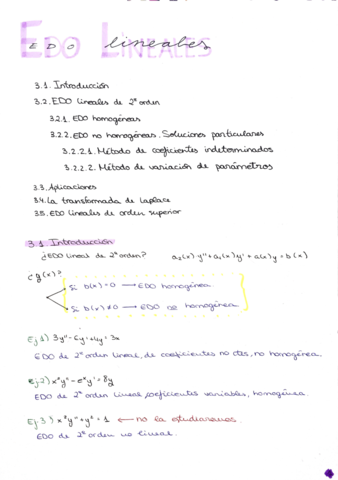 EDO LINEALES
EDO lineales
3.1. Introducción
3.2. EDO lineales de 2º orden
3.2.1. EDO homogéneas
3.2.2. EDO no homogéneas. Soluciones particulares
3.2.2.1. Método de coeficientes indeterminados
3.2.2.2. Método de variación de parámetros
3.3. Aplicaciones
3.4. La transformada de Laplace
3.5. EDO lineales de orden superior
3.1. Introducción
¿EDO lineal de 2º orden? a₂(x) y'' + a₁(x) y' + a(x) y = b(x)
Si b(x) = 0 → EDO homogénea
Si b(x) ≠ 0 → EDO no homogénea
Ej 1) 3y'' - 6y' + 4y = 3x
EDO de 2º orden lineal, de coeficientes ctes, no homogénea.
Ej 2) x²y'' - eˣy' = 8y
EDO de 2º orden lineal, coeficientes variables, homogénea.
Ej 3) x²y'' + y² = 1 ← no la estudiaremos.
EDO de 2º orden no lineal.